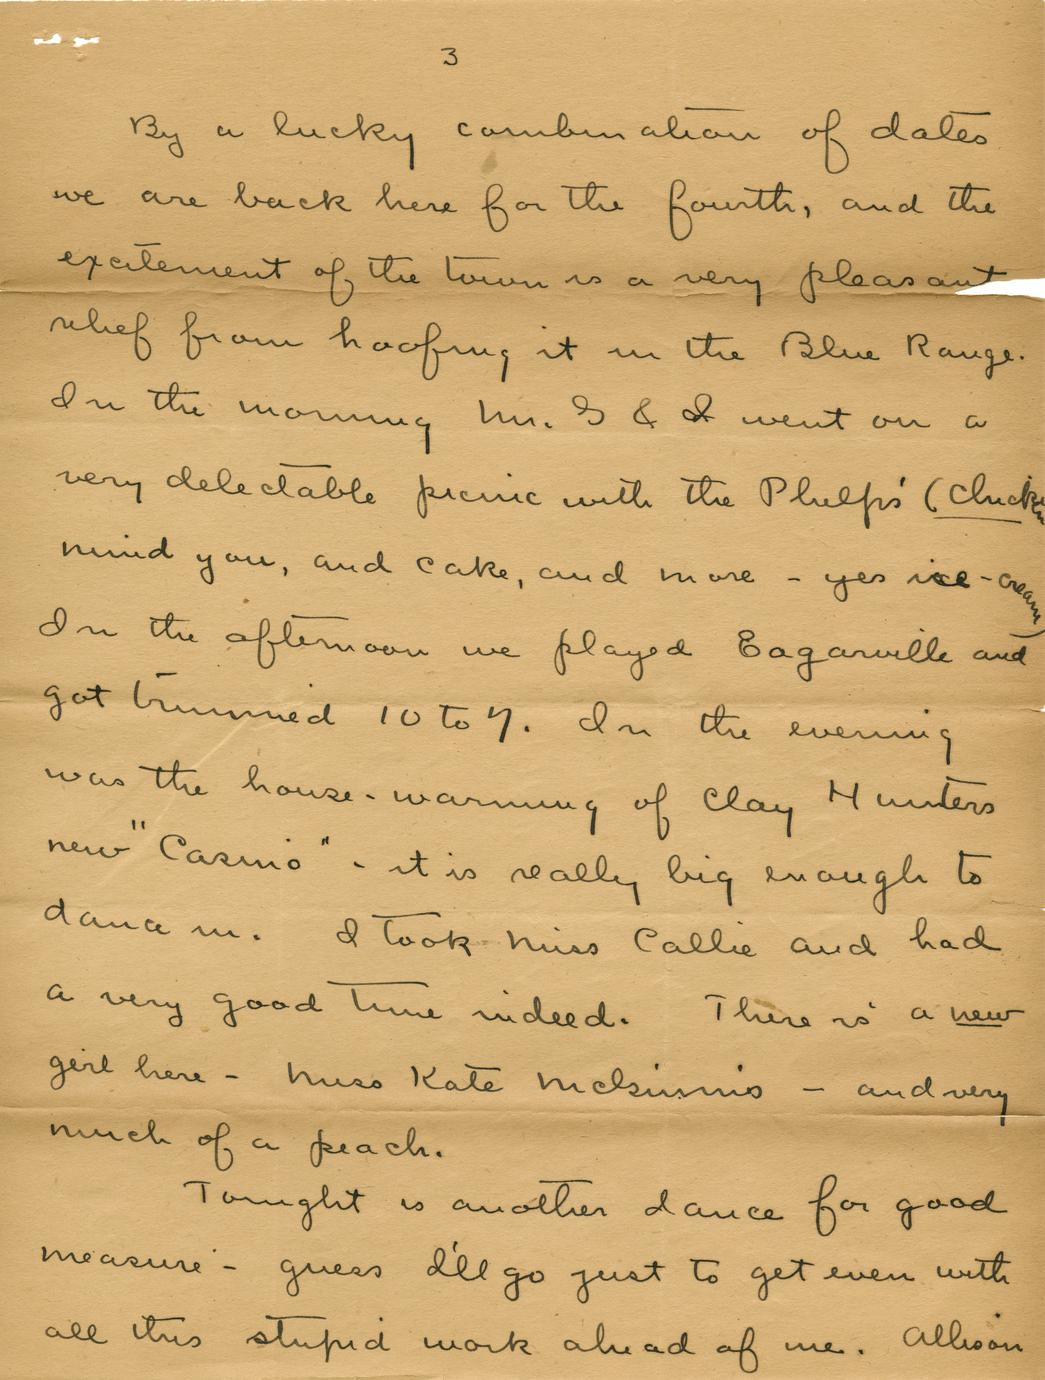 3
By a lucky combination of dates
we are back here for the fourth, and the
excitement of the town is a very pleasant
relief from hoofing it in the Blue Range.
In the morning Mr. G & I went on a
very delectable picnic with the Phelps' (Chicken
mind you, and cake, and more - yes ice-cream)
In the afternoon we played Eagarville and
got trimmed 10 to 7. In the evening
was the house-warming of Clay Hunters
new "Casino" - it is really big enough to
dance in. I took Miss Callie and had
a very good time indeed. There is a new
girl here - Miss Kate McGinnis - and very
much of a peach.
Tonight is another dance for good
measure - guess I'll go just to get even with
all this stupid work ahead of me. Allison